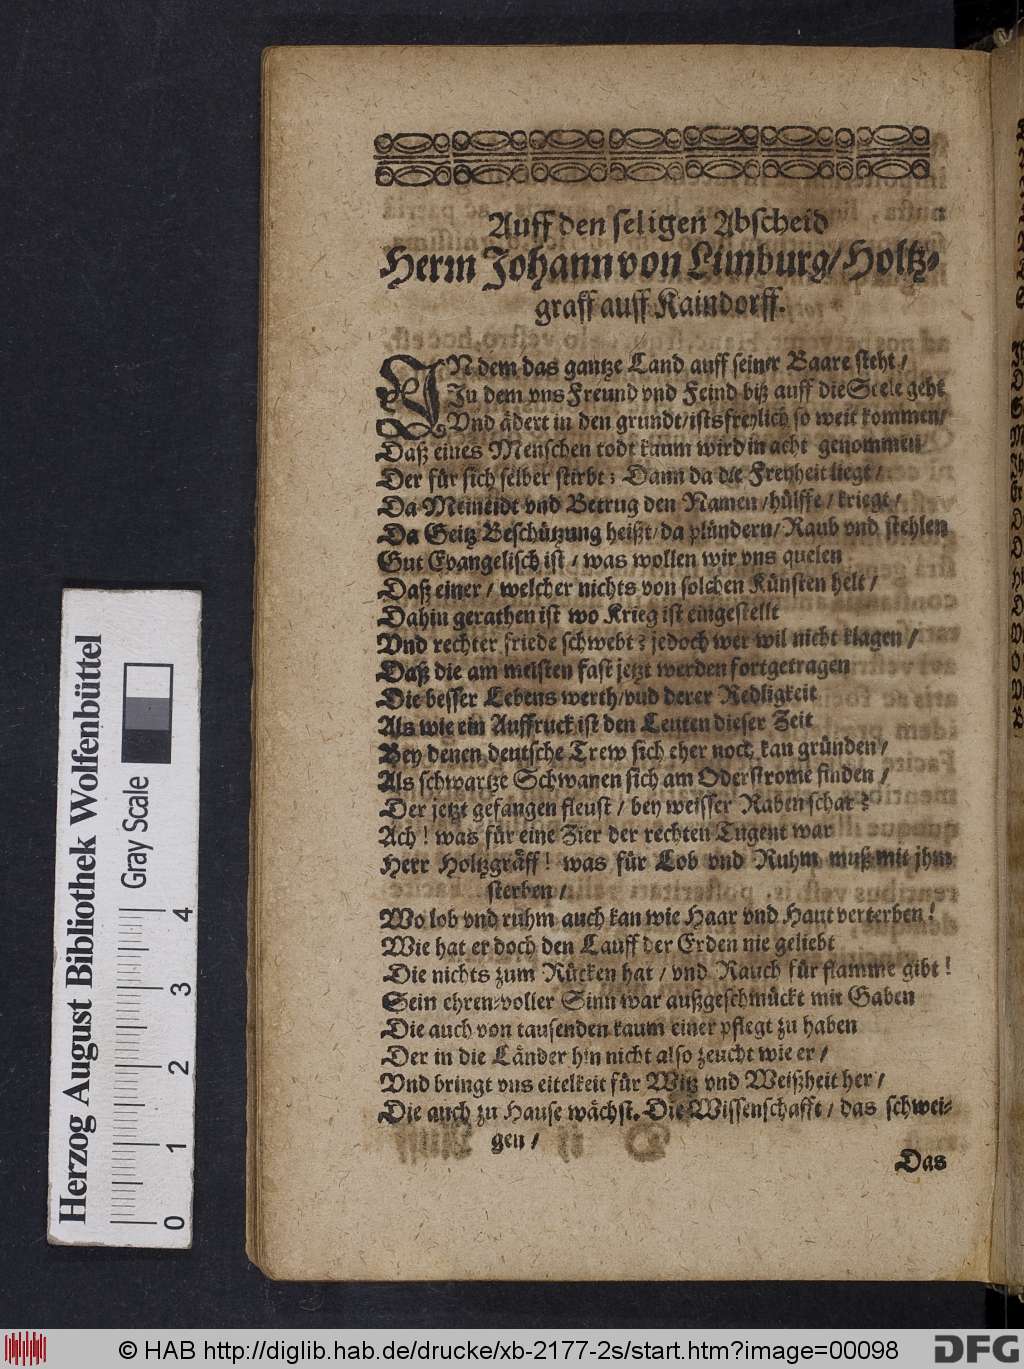 Auff den seligen Abscheid
Herrn Johann von Limburg/Holtz-
graff auff Kaindorff.
IN dem das gantze Land auff seiner Baare steht/
In dem vns Freund vnd Feind biß auff die Seele geht
Vnd ädert in den grundt/ists freylich so weit kommen/
Daß eines Menschen todt kaum wird in acht genommen
Der für sich selber stirbt; Dann da die Freyheit liegt/
Da Meineidt vnd Betrug den Namen/hülffe/kriegt/
Da Geitz Beschützung heißt/da plündern/Raub vnd stehlen
Gut Evangelisch ist/was wollen wir vns quelen
Daß einer/welcher nichts von solchen Künsten helt/
Dahin gerathen ist wo Krieg ist eingestellt
Vnd rechter friede schwebt? jedoch wer wil nicht klagen/
Daß die am meisten fast jetzt werden fortgetragen
Die besser Lebens werth/vnd derer Redligkeit
Als wie ein Auffruck ist den Leuten dieser Zeit
Bey denen deutsche Trew sich eher noch kan gründen/
Als schwartze Schwanen sich am Oderstrome finden/
Der jetzt gefangen fleust/bey weisser Rabenschar?
Ach! was für eine Zier der rechten Tugent war
Herr Holtzgräff! was für Lob vnd Ruhm muß mit jhm
sterben/
Wo lob vnd ruhm auch kan wie Haar vnd Haut verterben!
Wie hat er doch den Lauff der Erden nie geliebt
Die nichts zum Rücken hat/vnd Rauch für flamme gibt!
Sein ehren-voller Sinn war außgeschmückt mit Gaben
Die auch von tausenden kaum einer pflegt zu haben
Der in die Länder hin nicht also zeucht wie er/
Vnd bringt vns eitelkeit für Witz vnd Weißheit her/
Die auch zu Hause wächst. Die Wissenschafft/das schwei-
gen/
Das
Herzog August Bibliothek Wolfenbüttel
Gray Scale
0 1 2 3 4
© HAB http://diglib.hab.de/drucke/xb-2177-2s/start.htm?image=00098
DFG